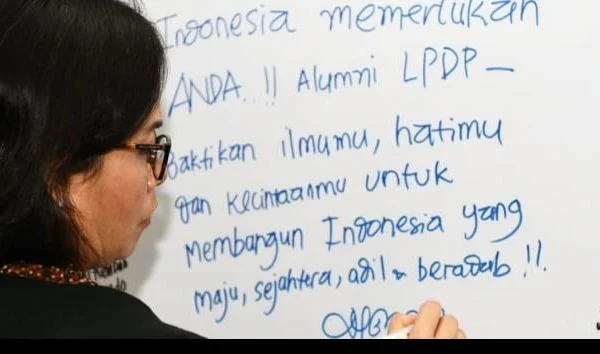 Indonesia memerlukan
ANDA..!! Alumni LPDP –
Baktikan ilmumu, hatimu
dan kecintaanmu untuk
membangun Indonesia yang
maju, sejahtera, adil & beradab !!.